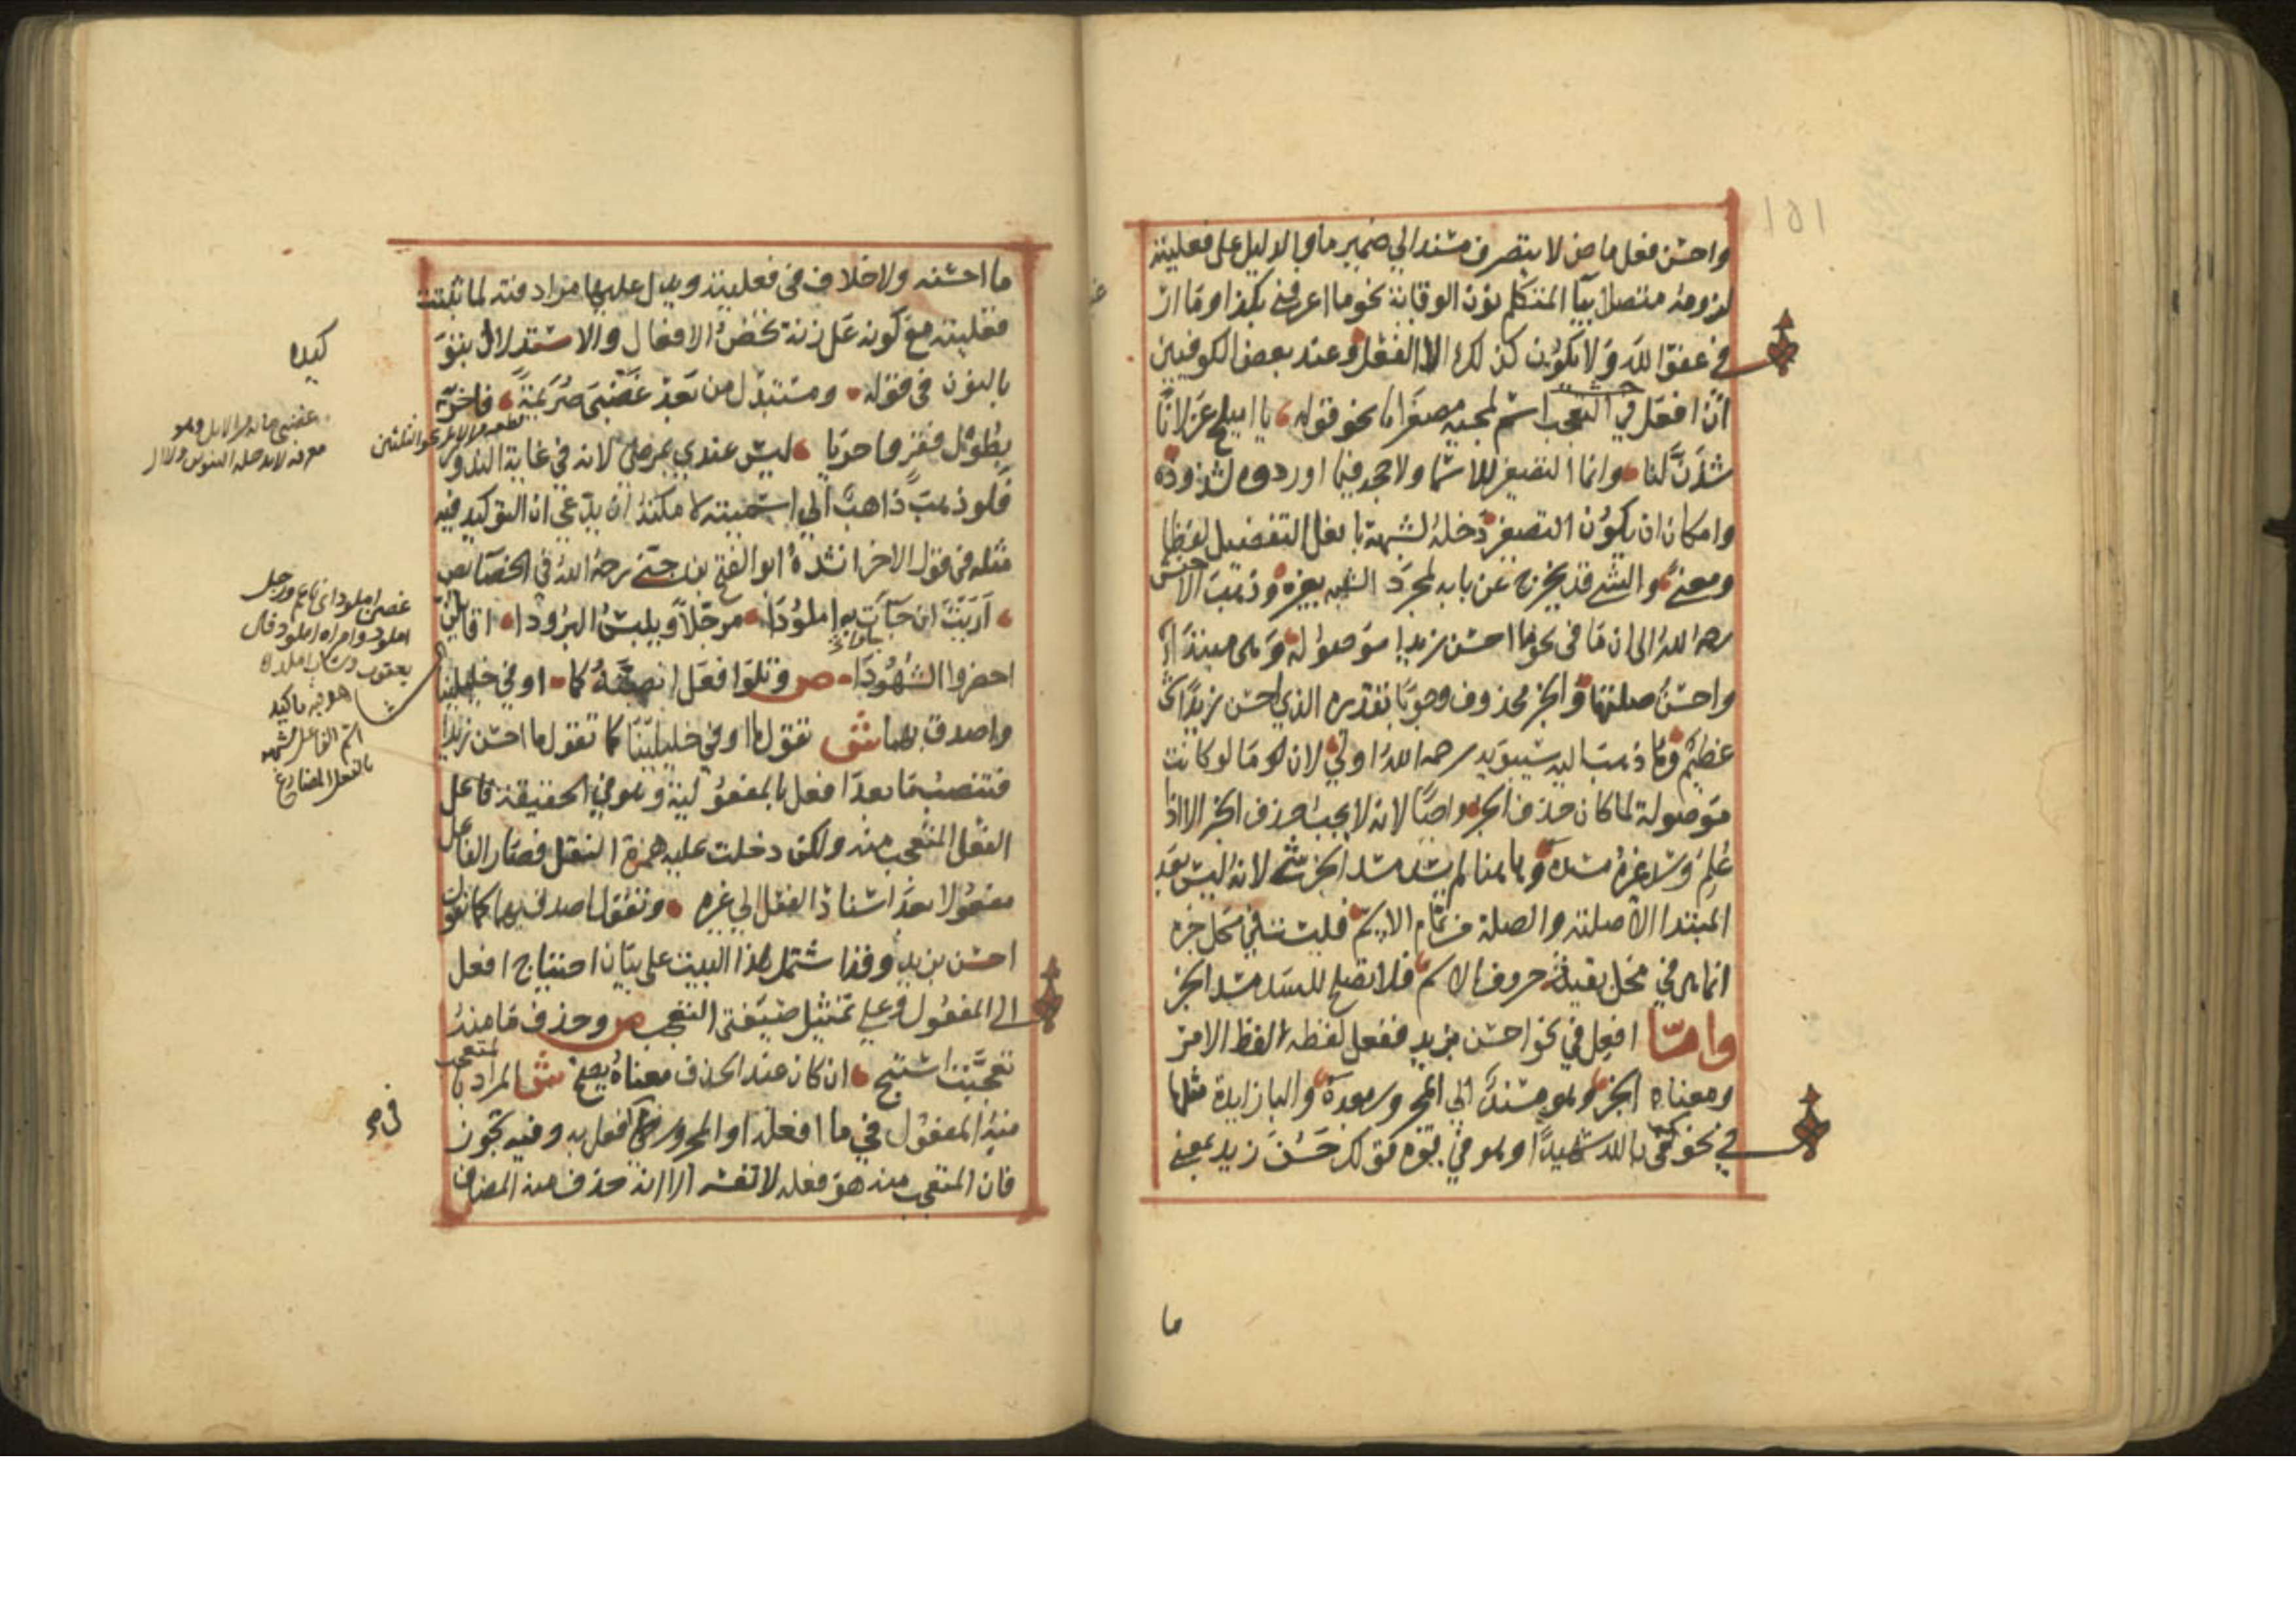 ١٥١
واحسن فعل ماض لا يتصرف مسندا الي ضمير ما والدليل علي فعليته
لزومه متصلا بيآ المتكلم نون الوقاية نحو ما اعرفني بكذا وما ار
في عفو الله ولا يكون كذلك الا الفعل وعند بعض الكوفيين
ان افعل في التعجب اسم لمجيه مصغرا نحو قوله يا اميلح غزلانا
شدن لنا وانما التصغير للاسما ولا حجة فيما اوردوه لشذوذه
وامكان ان يكون التصغير دخله لشبهه بافعل التفضيل لفظا
ومعني والشي قد يخرج عن بابه لمجرد الشبه بغيره وذهب الاخفش
رحمه الله الى ان ما في نحو ما احسن زيدا موصولة وهى مبتدا
واحسن صلتها والخبر محذوف وجوبا تقديره الذي احسن زيدا شي
عظيم وما ذهب اليه سيبويه رحمه الله اولي لان ما لو كانت
موصولة لما كان حذف الخبر واجبا لانه لا يجب حذف الخبر الا اذا
علم وسد غيره مسده وها هنا لم يسد مسد الخبر شي لانه ليس بعد
المبتدا الا صلته والصلة من تمام الاسم فليست في محل خبره
انما هى في محل بقية حروف الاسم فلا تصلح للسد مسد الخبر
واما افعل في نحو احسن بزيد ففعل لفظه لفظ الامر
ومعناه الخبر وهو مسند الي المجرور بعده والبا زايدة مثلها
في نحو كفى بالله شهيدا وهو في قوة قولك حسن زيد بمعني
ما
ما احسنه ولا خلاف في فعليته ويدل عليها مرادفته لما ثبتت
فعليته مع كونه على زنة تخص الافعال والاستدلال بتوكيده
بالنون في قوله ومستبدل من بعد غضبى صريمة فاحر به
بطول فقر واحريا ليس عندي بمرضي لانه في غاية الندور
فلو ذهب ذاهب الي اسميته لامكنه ان يدعي ان التوكيد فيه
مثله في قول الاخر انشده ابو الفتح بن جني رحمه الله في الخصائص
اريت ان جآت به املودا مرجلا ويلبس البرودا اقايلن
احضروا الشهودا ص وتلو افعل انصبنه كما اوفي خليلينا
واصدق بهما ش تقول ما اوفي خليلينا كما تقول ما احسن زيدا
فتنصب ما بعد افعل بالمفعولية وهو في الحقيقة فاعل
الفعل المتعجب منه ولكن دخلت عليه همزة النقل فصار الفاعل
مفعولا بعد اسناد الفعل الي غيره وتقول اصدق بهما كما تقول
احسن بزيد وقد اشتمل هذا البيت على بيان احتياج افعل
الي المفعول وعلي تمثيل صيغتى التعجب ص وحذف ما منه
تعجبت استبح ان كان عند الحذف معناه يضح ش المراد بالمتعجب
منه المفعول في ما افعله او المجرور في افعل به وفيه تجوز
فان المتعجب منه هو فعله لا نفسه الا انه حذف منه المضاف
كيده
غضبى مائة من الابل وهو
معرفة لا يدخله التنوين ولا ال
غصن املود اي ناعم ورجل
املود وامراة املود قال
يعقوب وشاب املد
هو فيه تاكيد
اسم الفاعل لشبهه
بالفعل المضارع